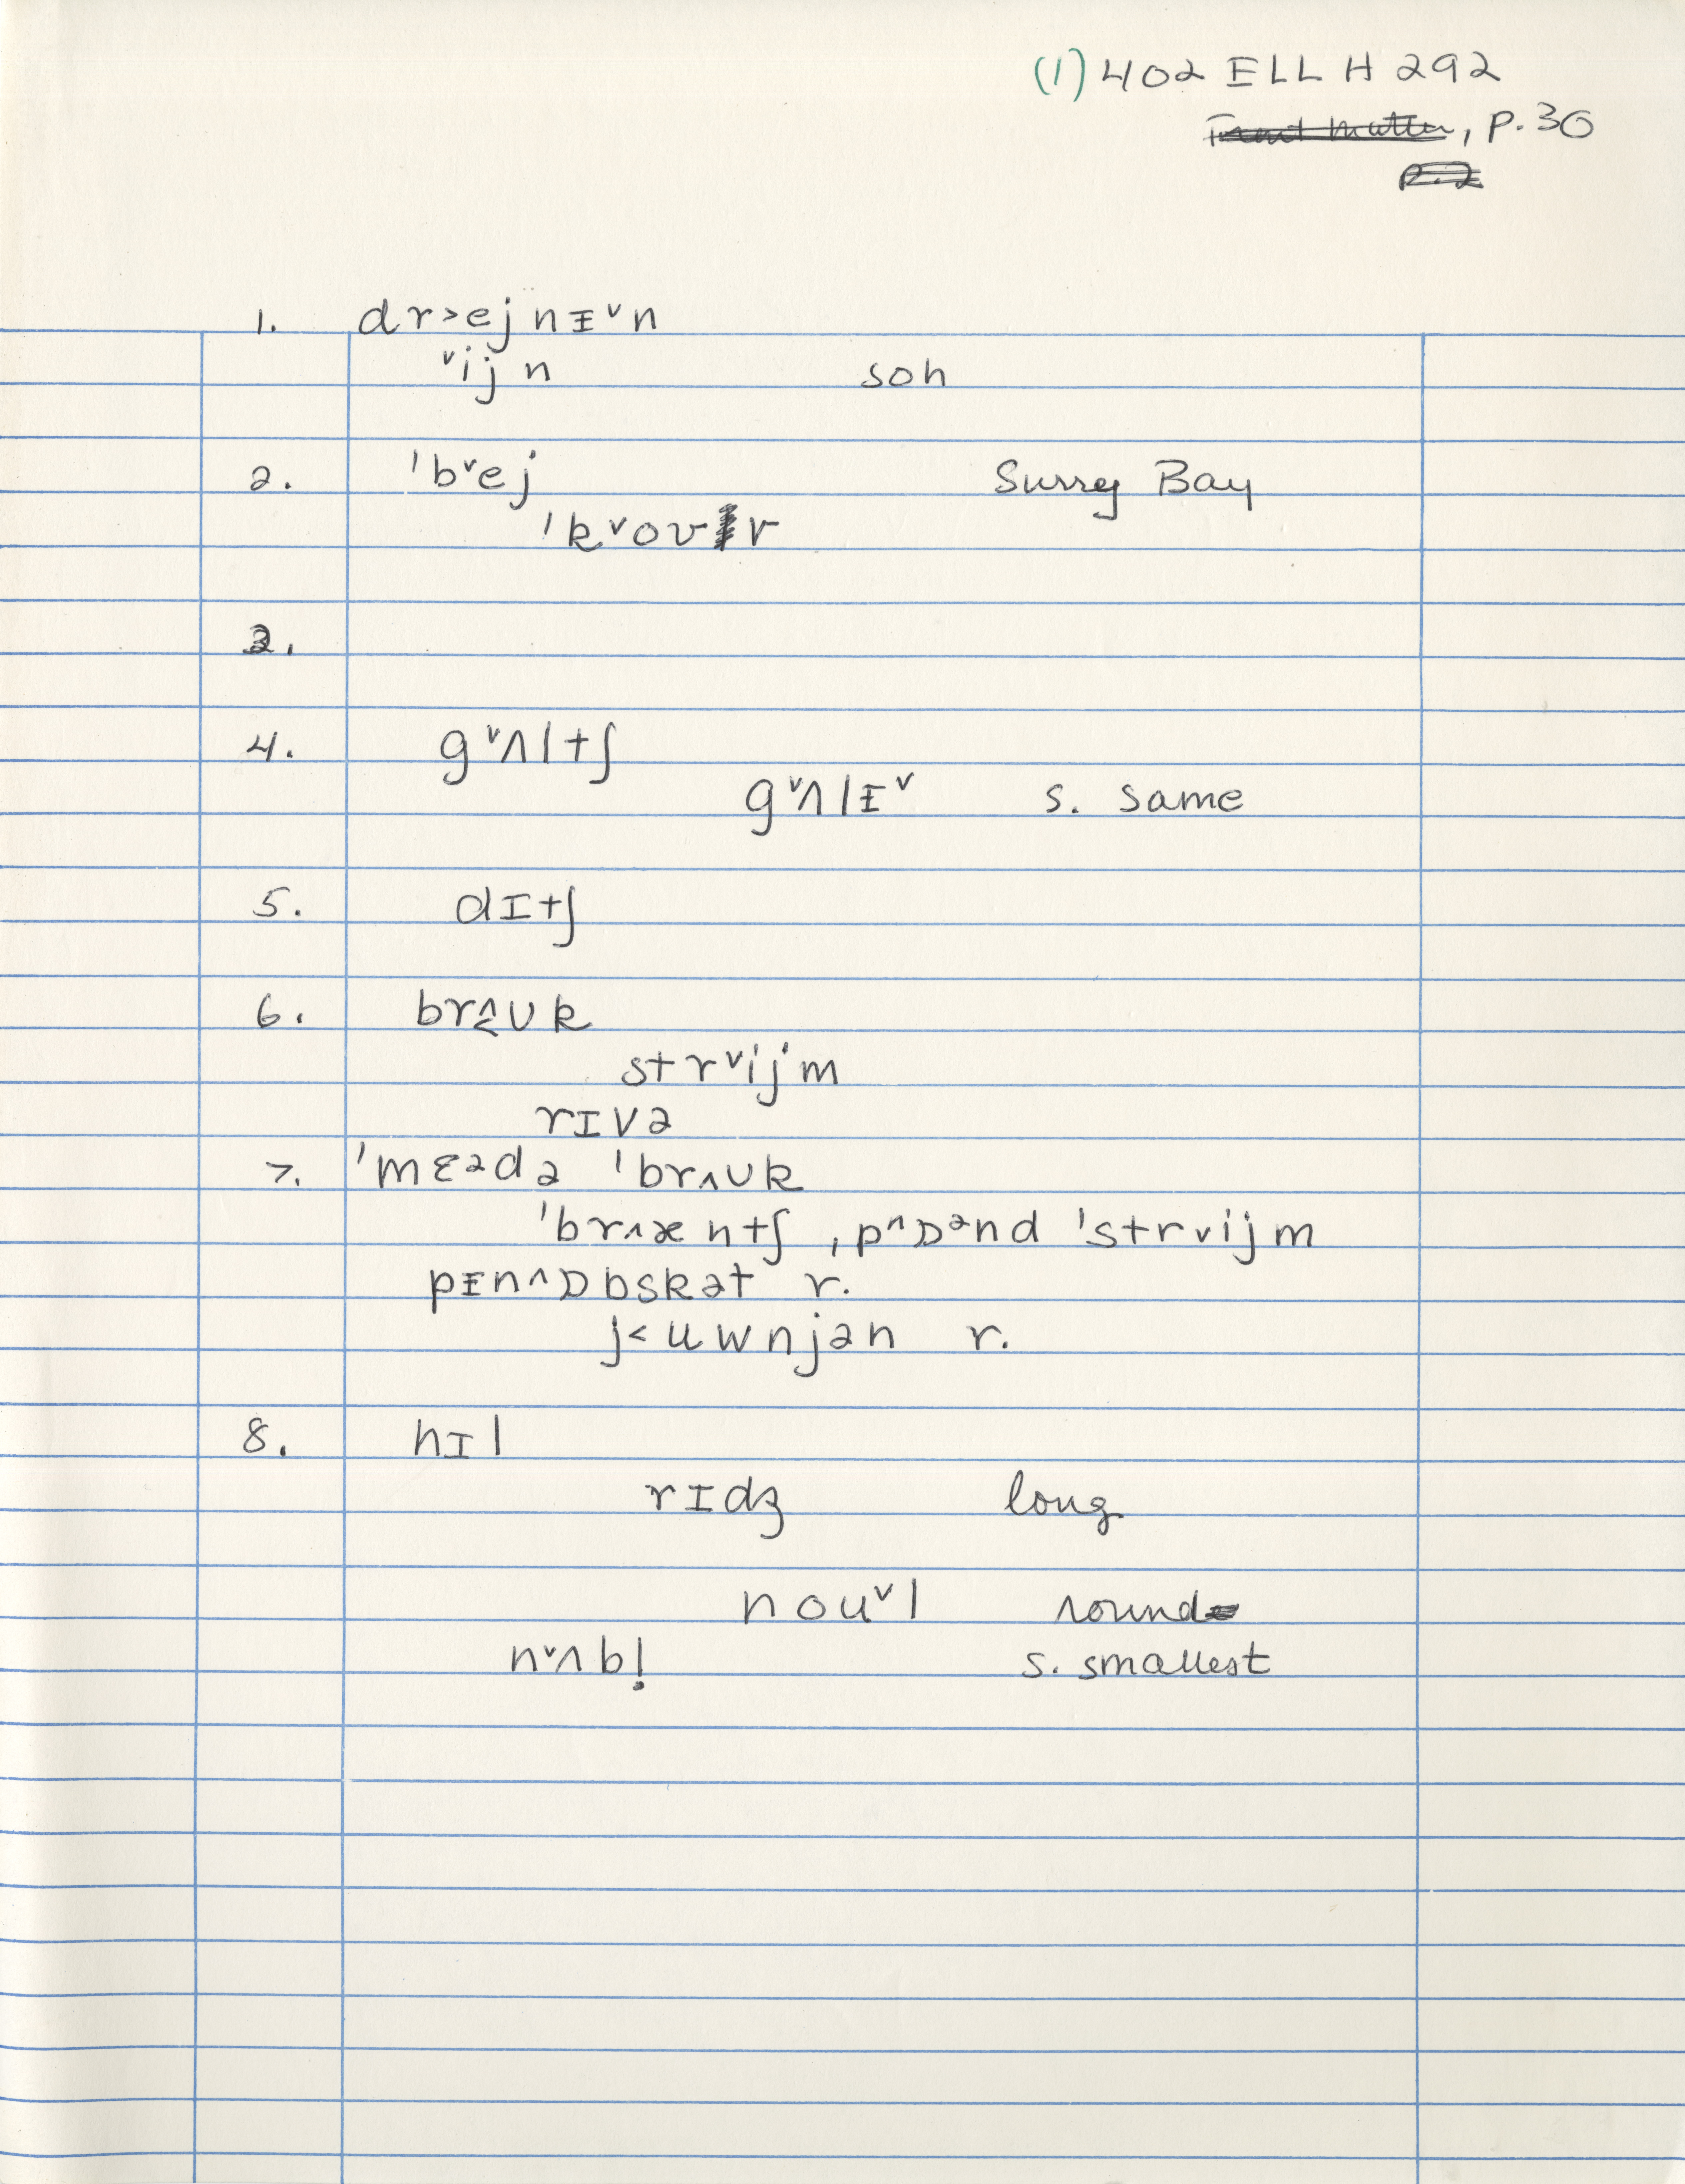 (1) 402 ELL H 292
, P. 30
1. dr˃ejnɪᵛn
ᵛijn soh
2. ˈbᵛej Surrey Bay
ˈkᵛovr
3.
4. gᵛʌltʃ
gᵛʌlɪᵛ s. same
5. dɪtʃ
6. brʌ̬ʊk
strᵛijm
rɪvə
7. ˈmɛədə ˈbrʌʊk
ˈbr^æntʃ, p^ɒənd ˈstrᵛijm
pɪn^ɒbskət r.
j˂uwnjən r.
8. hɪl
rɪdʒ long
noʊᵛl round
nᵛʌbl̩ s. smallest